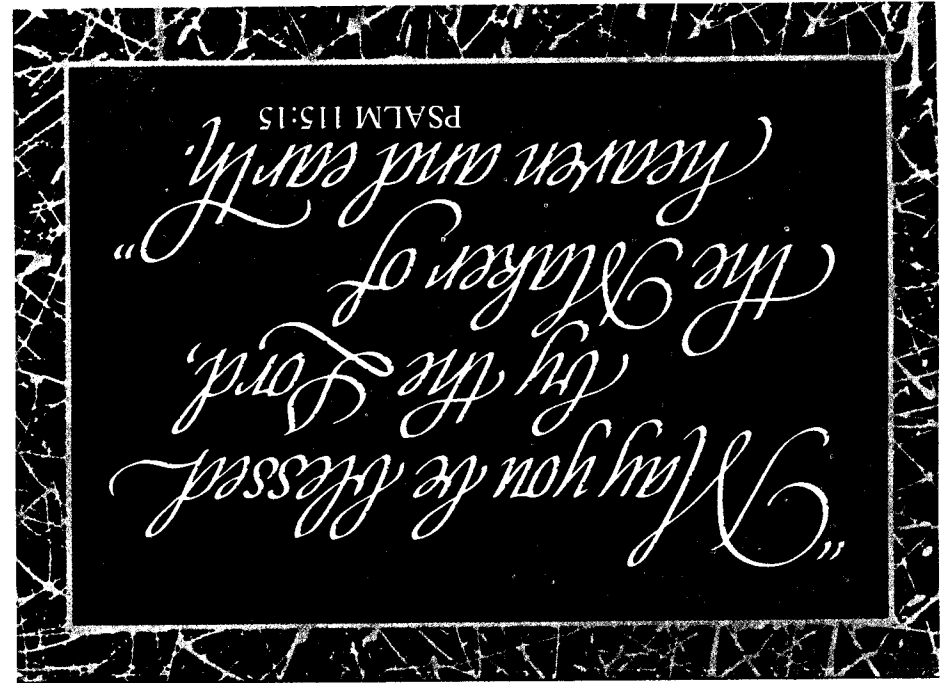 "May you be blessed
by the Lord,
the Maker of
heaven and earth."
PSALM 115:15